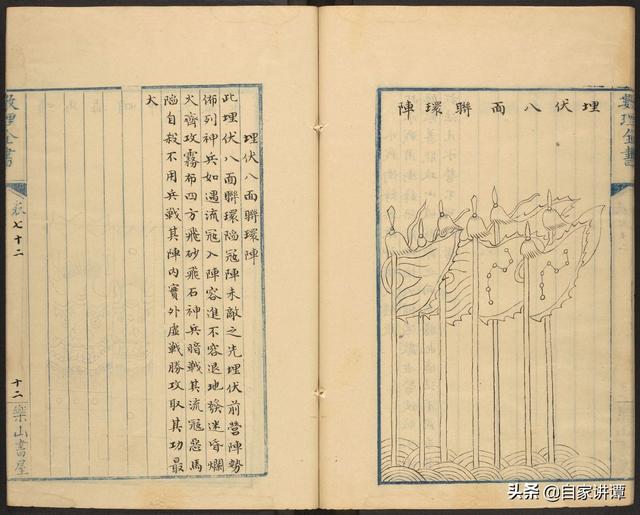 數理全書
埋伏八面聯環陣
埋伏八面聯環陣
此埋伏八面聯環陷寇陣未敵之先埋伏前營陣勢
佈列神兵如遇流寇入陣容進不容退地發迷昏爛
火齊攻霧布四方飛砂飛石神兵暗戰其流寇惡馬
陷自殺不用兵戰其陣內實外虛戰勝攻取其功最
大
數理全書
卷七十二
十二
樂山書屋
头条 @自家讲谭